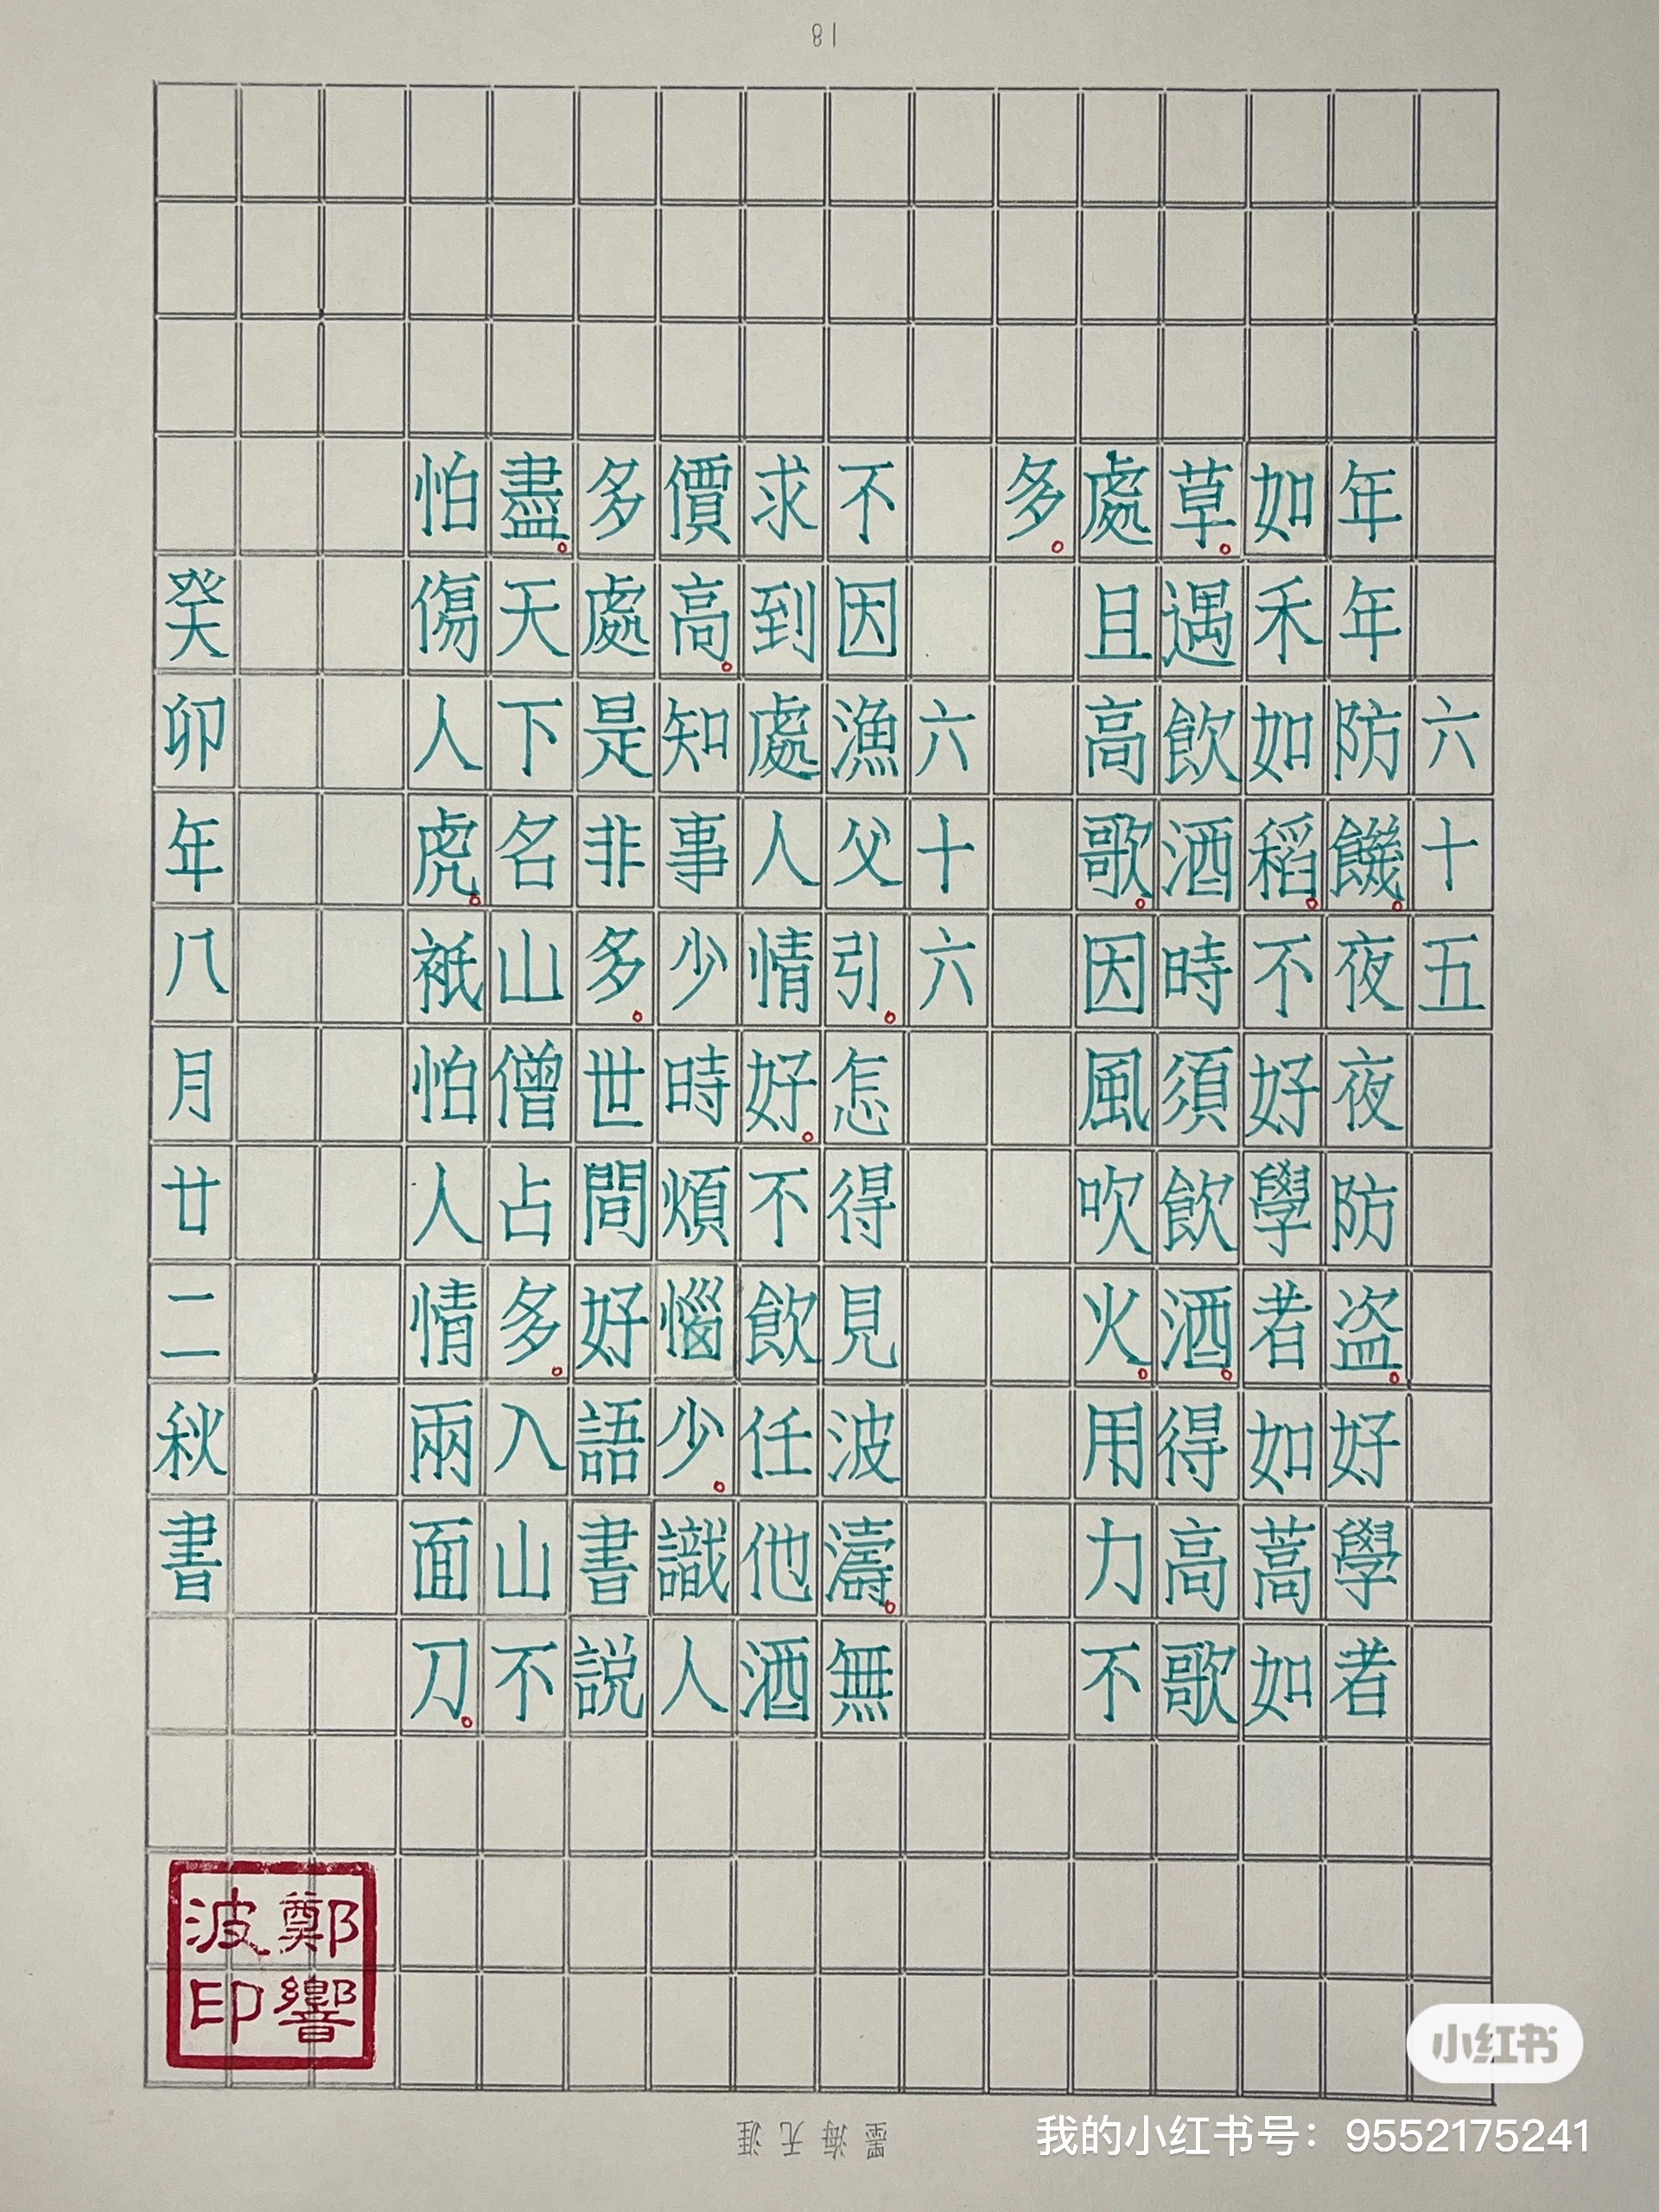 18
六十五
年年防饑。夜夜防盗。好學者
如禾如稻。不好學者如蒿如
草。遇飲酒時須飲酒。得高歌
處且高歌。因風吹火。用力不
多。
六十六
不因漁父引。怎得見波濤。無
求到處人情好。不飲任他酒
價高。知事少時煩惱少。識人
多處是非多。世間好語書說
盡。天下名山僧占多。入山不
怕傷人虎。衹怕人情兩面刀。
癸卯年八月廿二秋書
鄭響
波印
墨海无涯
小红书
我的小红书号：9552175241